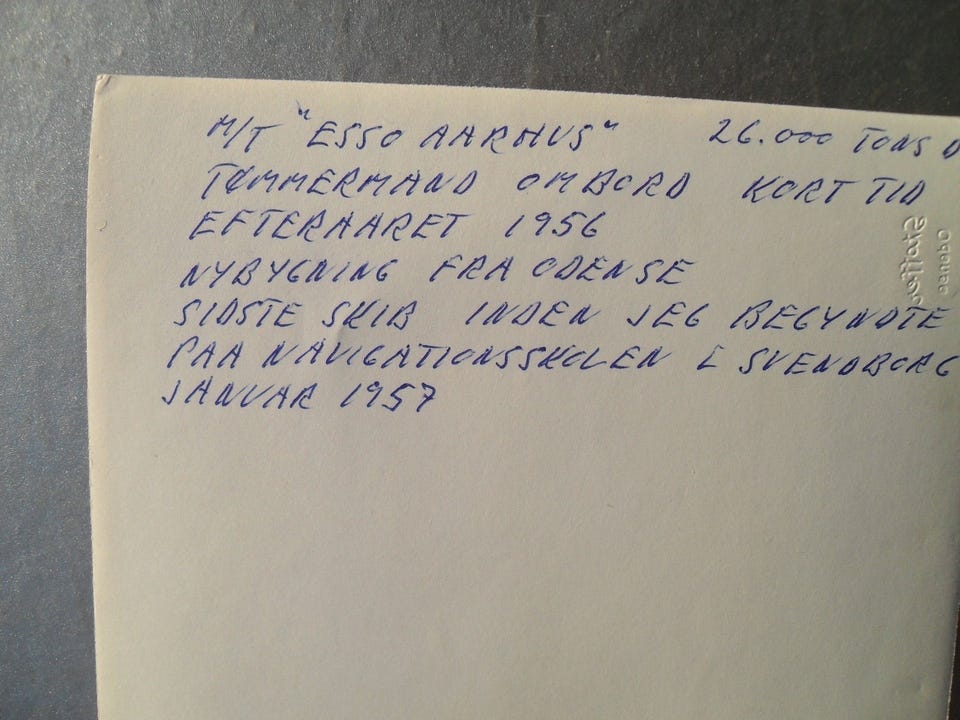 M/T "ESSO AARHUS" 26.000 TONS D
TØMMERMAND OMBORD KORT TID
EFTERAARET 1956
NYBYGNING FRA ODENSE
SIDSTE SKIB INDEN JEG BEGYNDTE
PAA NAVIGATIONSSKOLEN I SVENDBORG
JANUAR 1957
Odense